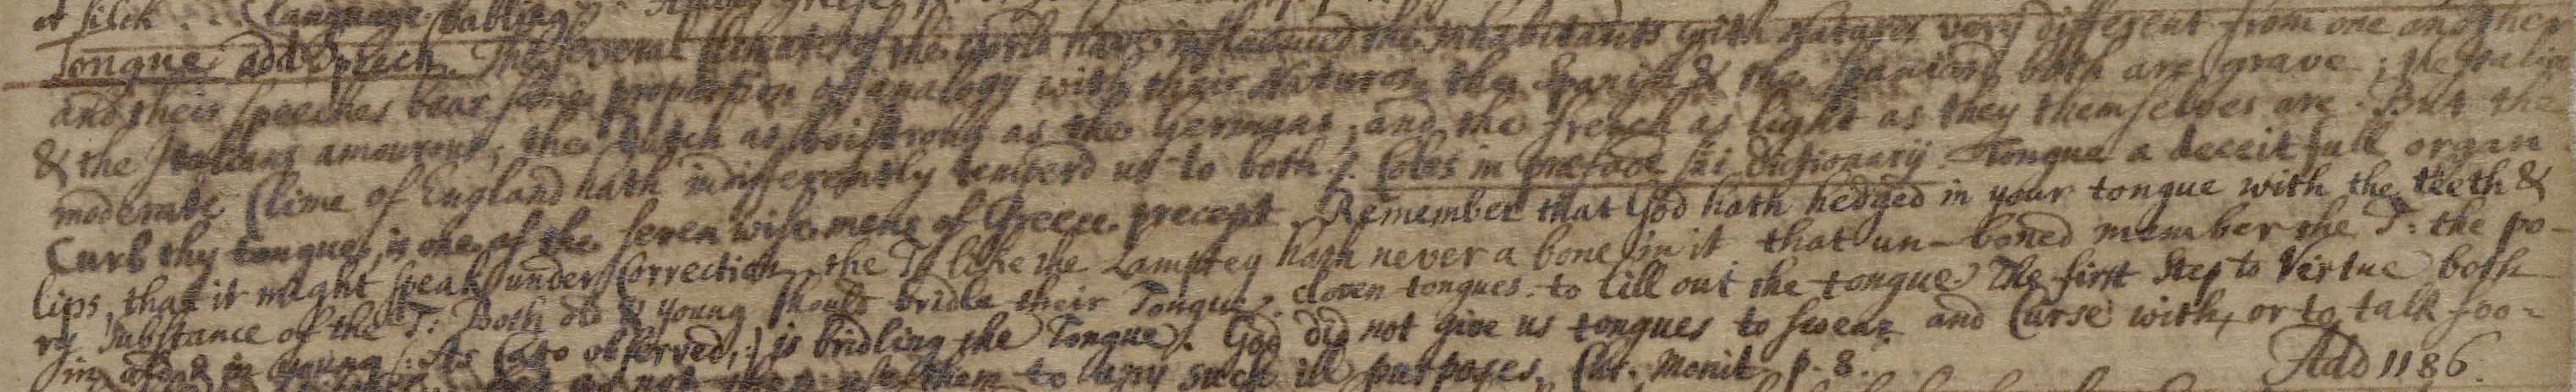 et silek (language, babling
Tongue add Speech. The several climates of the world have influenced the inhabitants with natures very different from one another
and their speeches bear some proportion of analogy with their natures. the Spanish & the Spaniard both are grave; the Italian
& the Italians amourous; the Dutch as boistrous as the Germans, and the french as light as they themselves are. But the
moderate Clime of England hath indifferently temperd us to both. Coles in preface dictionary. Tongue a deceitfull organ
Curb thy tongue, is one of the seven wise mens of Greece precept. Remember that God hath hedged in your tongue with the teeth &
lips, that it might speak under Correction. the T. like the Lamprey hath never a bone in it that un-boned member the T: the po-
ry substance of the T: Both old & young should bridle their Tongue. cloven tongues. to lill out the tongue. The first Step to Virtue both
in old & in young (: As Cato observed,:) is bridling the Tongue. God did not give us tongues to swear and Curse with, or to talk foo-
not then use them to any such ill purposes. Chr. Monit. p. 8. Add 1186.